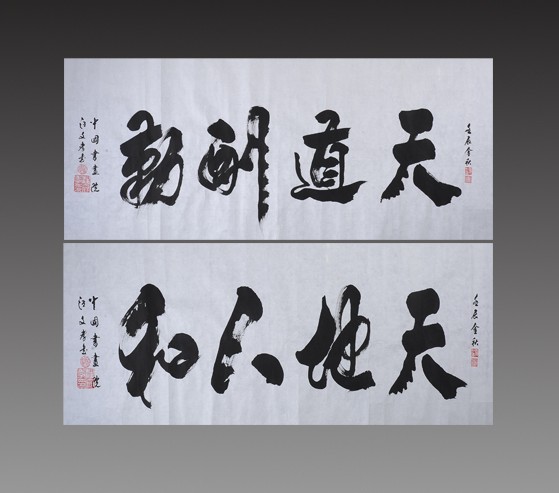 壬辰金秋
天道酬勤
中国书画院
汪文芳书
壬辰金秋
天地人和
中国书画院
汪文芳书